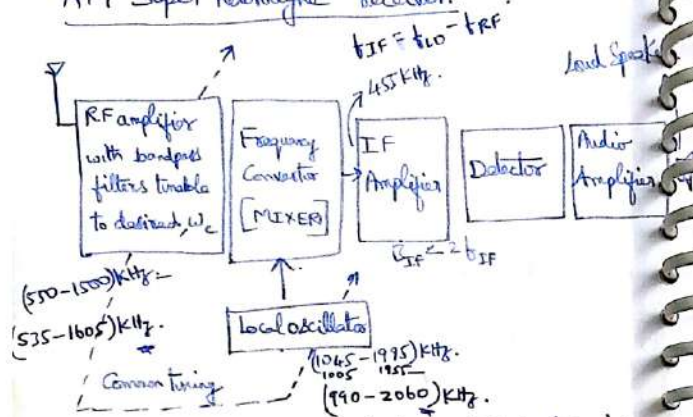 AM Super Receiver
f_IF = f_LO - f_RF
455 KHz.
Loud Speaker
RF amplifier
with bandpass
filters tunable
to desired, ω_c
Frequency
Convertor
[MIXER]
IF
Amplifier
Detector
Audio
Amplifier
B_IF < 2f_IF
(550-1500) KHz
(535-1605) KHz.
Local oscillator
(1045-1995) KHz.
1005 1955
(990-2060) KHz.
Common tuning